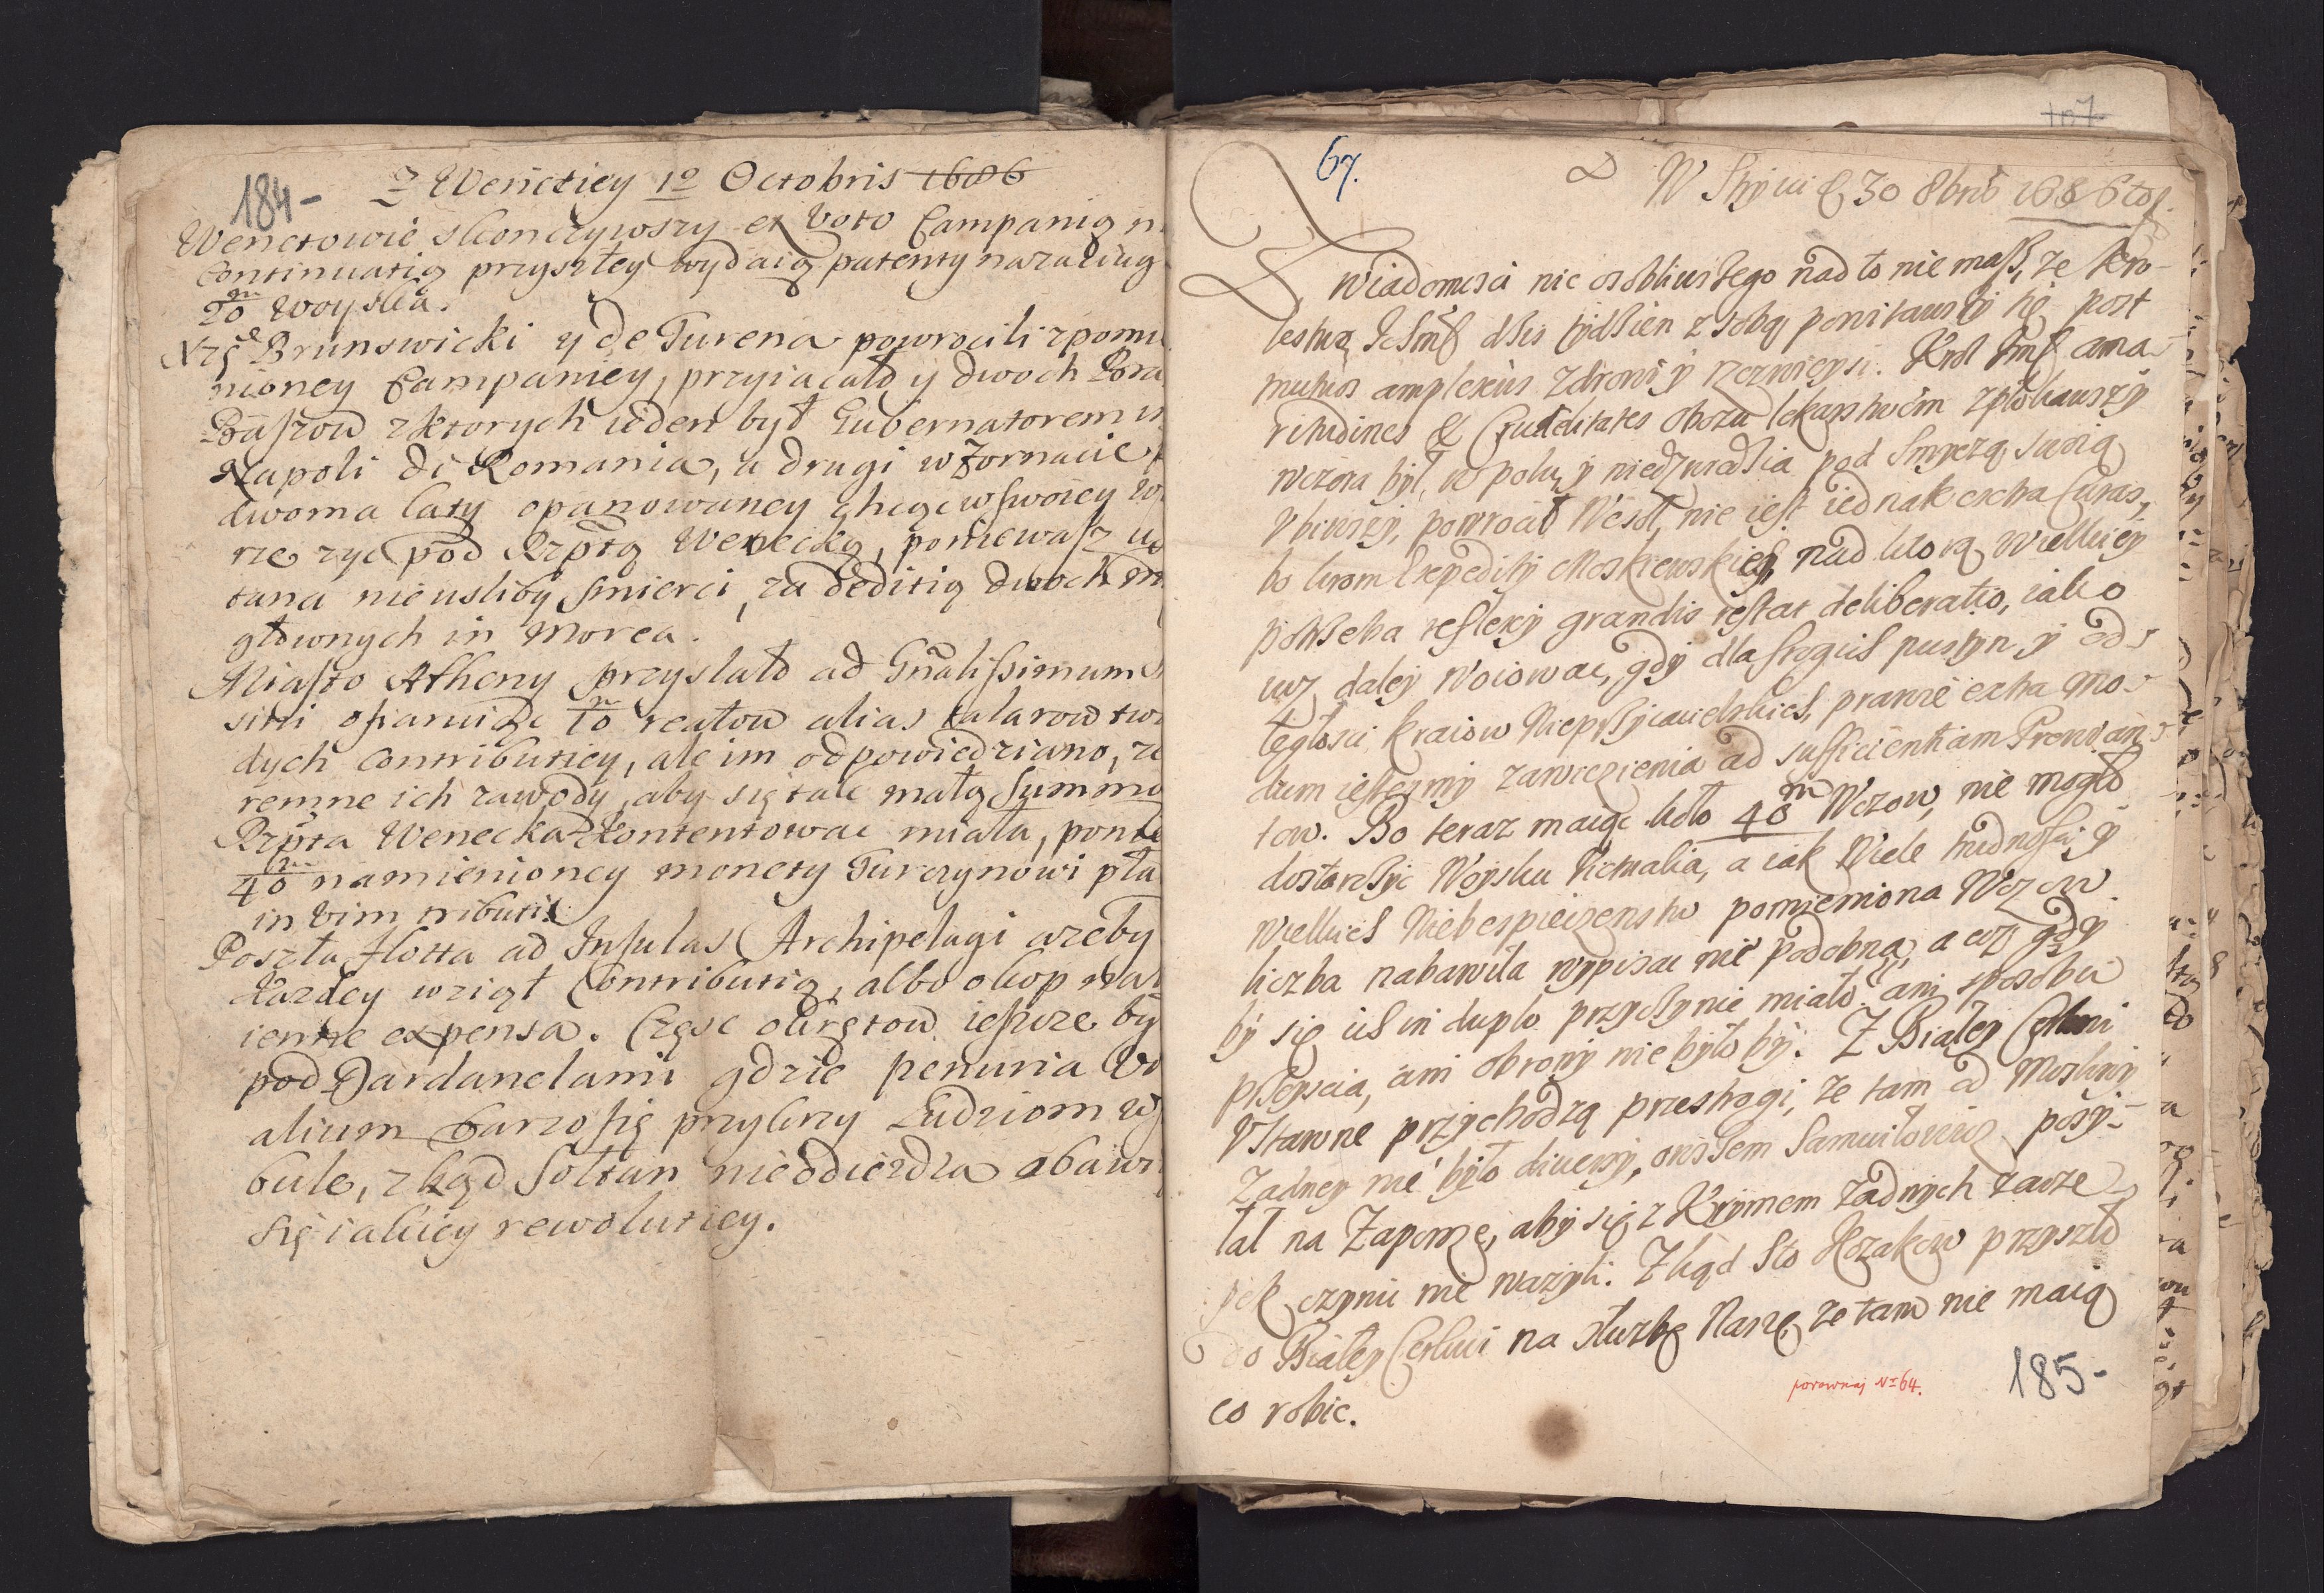 184-
z Wenetiey 1º Octobris 1686
Wenetowie skonczywszy ex voto Campanią n
Continuatią przyszłey wydaią patenty nazaciąg
20 m woyska.
Xże Brunswicki y de Turena powrocili z pomi
nioney Campaniey, przyiacało y dwoch Bra
Baszow z ktorych ieden był Gubernatorem w
Napoli di Romania, a drugi w Zornacie
dwoma laty opanowaney chcąc w swoiey w
rze zyc pod Rzptą Wenecką, poniewasz u
tana nie usliby smierci, za deditią dwoch m
głownych in Morea.
Miasto Atheny przysłało ad Gnalissimum
sini ofiaruiąc 10 m reałow alias talarow tw
dych Contributiey, ale im odpowiedziano, ze
remne ich zawody, aby się tak małą Summą
Rzpta Wenecka kontentowac miała, ponie
40 m namienioney monety Turczynowi pła
in vim tributi.
Poszła flotta ad Insulas Archipelagi azeby
kazdey wziąt Contributią, albo okop wo
ienne expensa. Częsc okrętow ieszcze by
pod Dardanelami gdzie penuria Vi
alium barzo się przykrzy Ludziom w
bule, zkąd Sołtan nieodiezdza obawi
się iakiey rewolutiey.
67.
107
W Stryiu d 30 8bris 1686 to
Z Wiadomosci nic osobliwszego nad to nie masz, ze Kro-
lestwo Ichmć dzis tydzien z sobą powitawszy się post
mutuos amplexus zdrowi y rzezwieysi. Krol Jmć ama-
ritudines & Cruditates obozu lekarstwem zpłokawszy
wczora był w polu, y niedzwiadzia pod Smyczą swoią
Vbiwszy, powrocił Wesoł, nie iest iednak extra Curas,
bo krom Expeditiy Moskiewskiey, nad ktorą wielkiey
potrzeba reflexiy grandis restat deliberatio, iako
iusz daley Woiowac, gdy dla srogich pustyn y od-
ległosci kraiow Nieprzyiacielskich, prawie extra mo-
dum iestesmy zawiezienia ad sufficientiam Prowian-
tow. Bo teraz maiąc koło 40 m Wozow, nie mogło
dostarczyc Woysku Victualia, a iak Wiele trudnosci y
wielkich Niebespieczenstw pomieniona Wozow
liczba nabawiła wypisac nie podobna, a coz gdy
by się ich in duplo przyczynic miało? ani sposobu
przeyscia, ani obrony nie było by. Z Białey Cerkwi
Vstawne przychodzą przestrogi, ze tam od Moskwy
Zadney nie było diversiy, owszem Samuiłowicz posy-
łał na Zaporoze, aby się z Krymem zadnych zacze
pek czynic nie wazyli. Zkąd sto Kozakow przyszło
do Białey Cerkwi na słuzbę Naszę, ze tam nie maią
co robic.
porownaj Nr 64.
185-